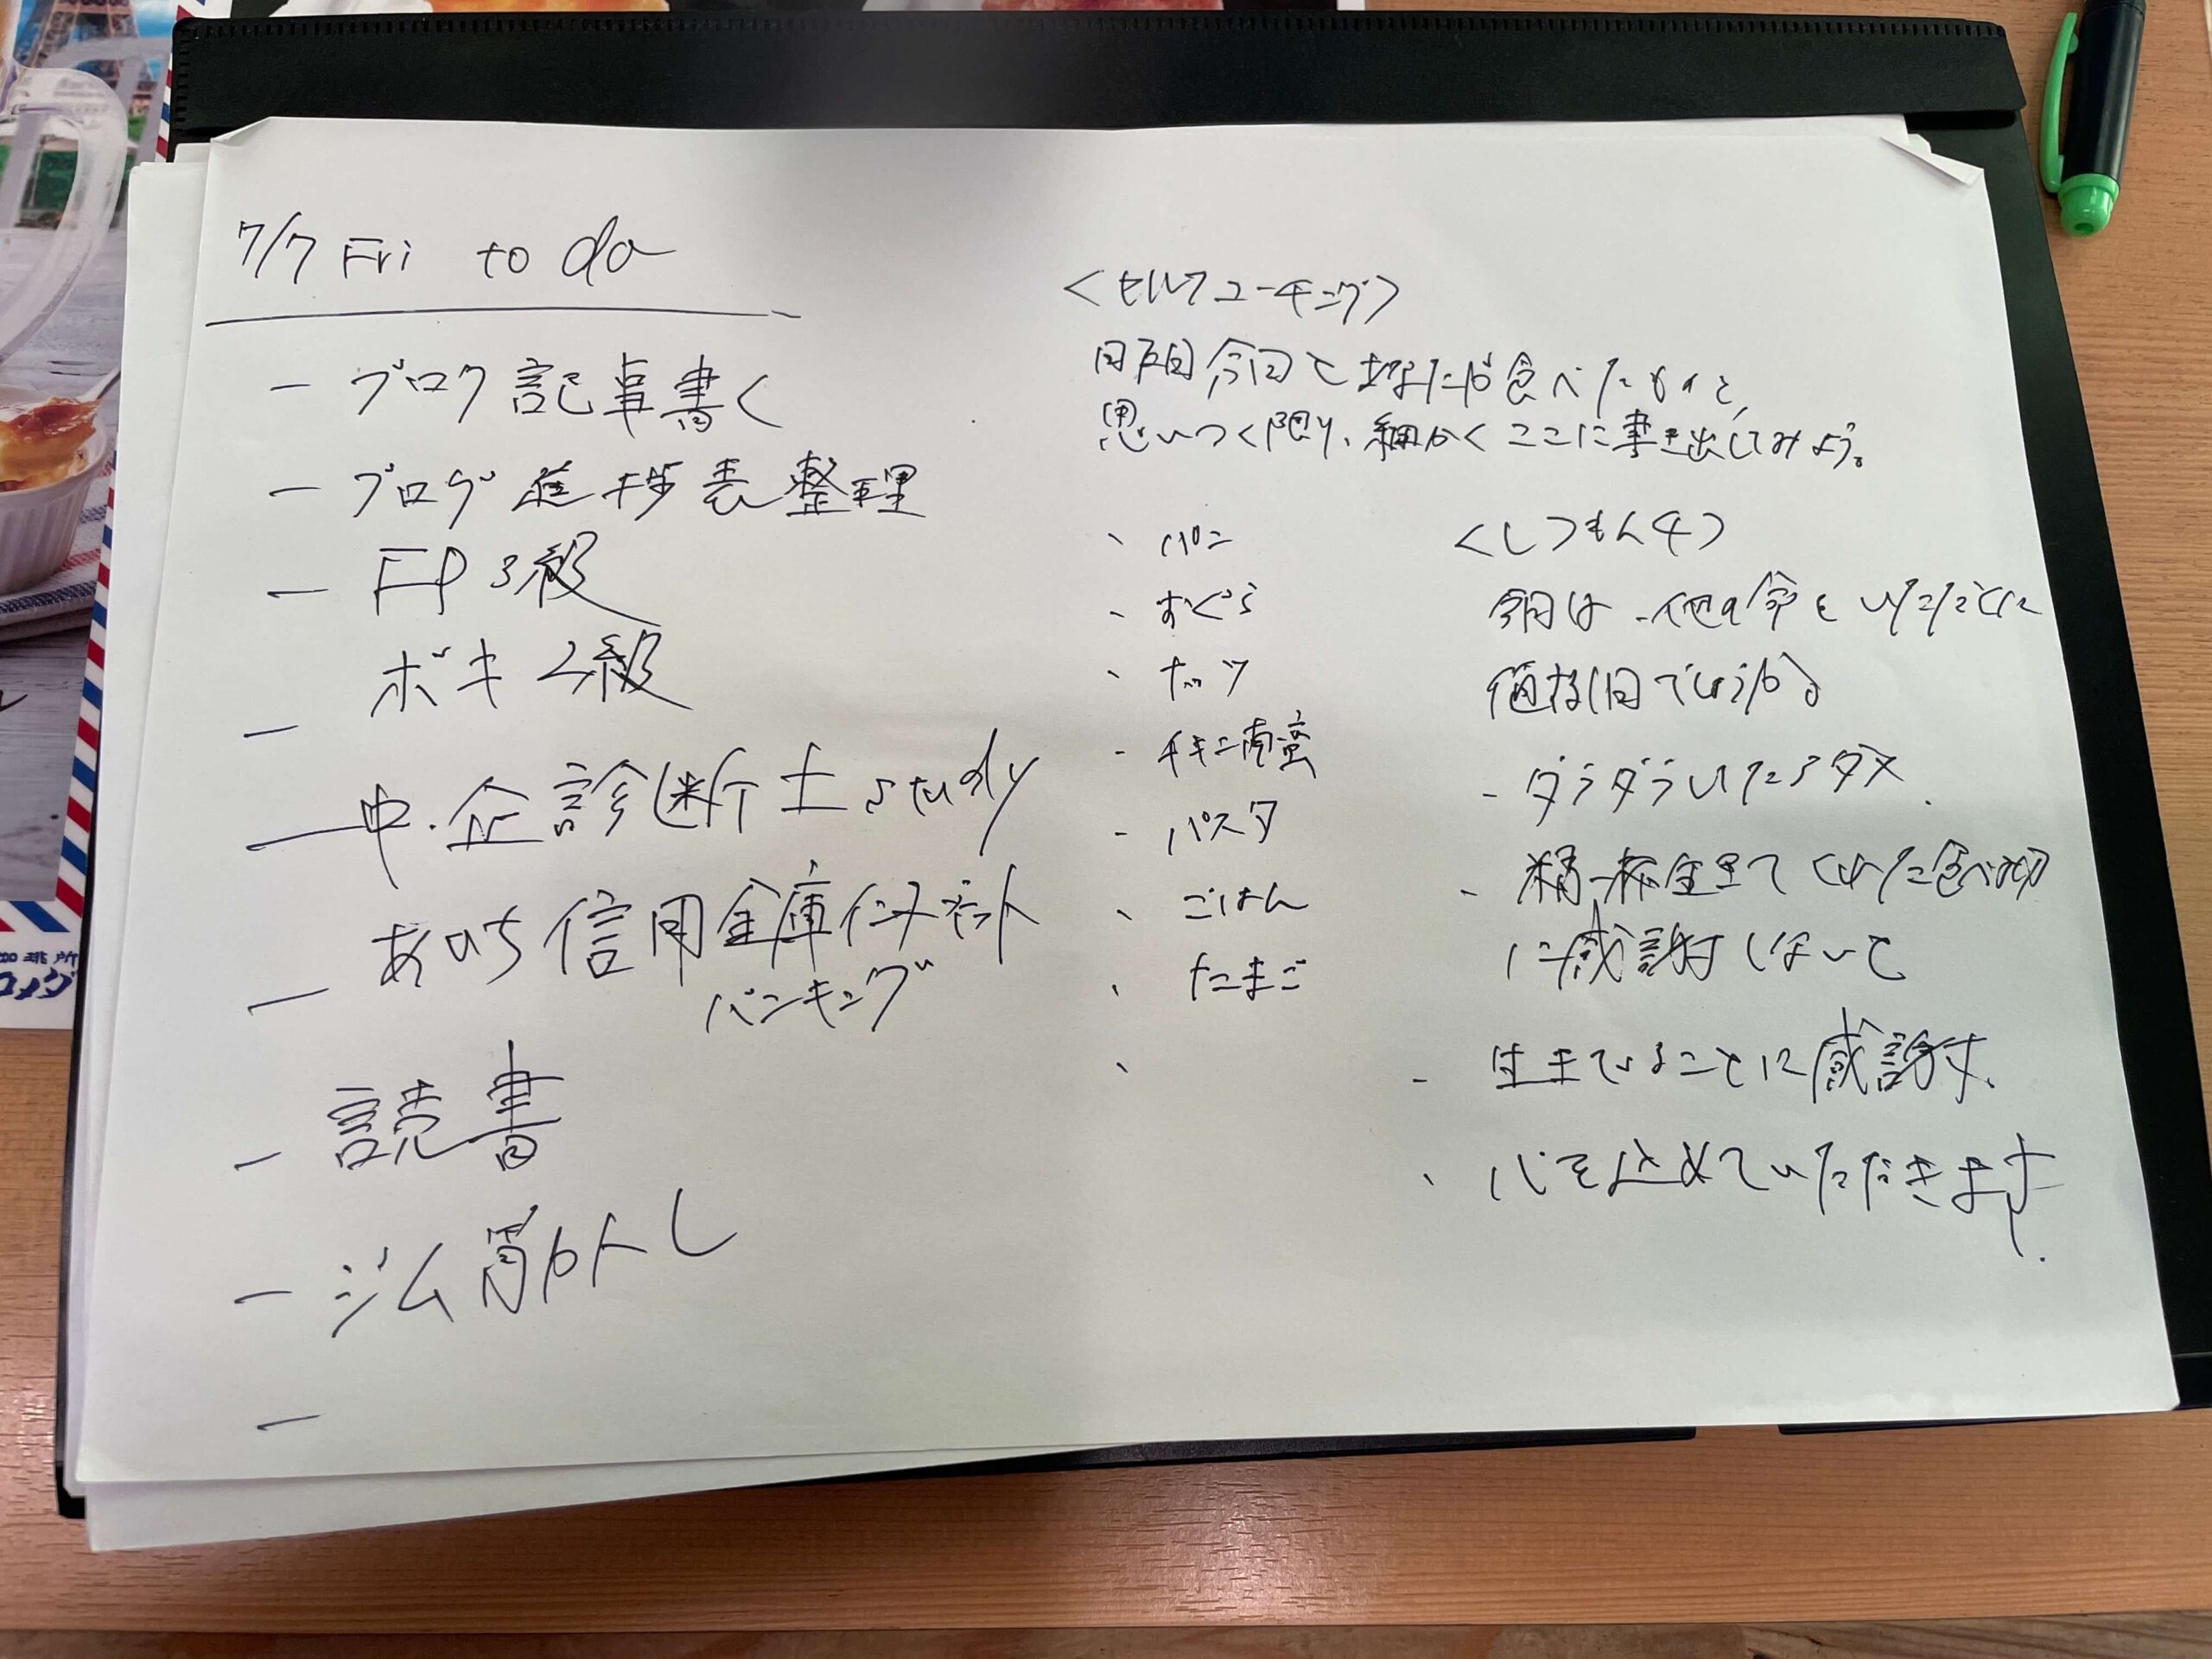 7/7 Fri to do
- ブログ記事書く
- ブログ進捗表整理
- FP3級
- ボキ2級
- 中・企診断士 study
- あいち信用金庫インターネット
バンキング
- 読書
- ジム筋トレ
-
<セルフコーチング>
今回であなたが食べたものを、
思いつく限り、細かくここに書き出してみよう。
、パン
、すくら
、ナッツ
- チキン南蛮
- パスタ
、ごはん
、たまご
、
<しつもん4>
今日は、他の命をいただくに
値する1日でしょうか?
- ダラダラしたらダメ
- 精一杯生きてくれた食べ物
に感謝しないと
- 生きてることに感謝す、
、心を込めていただきます.
珈琲所
コメダ